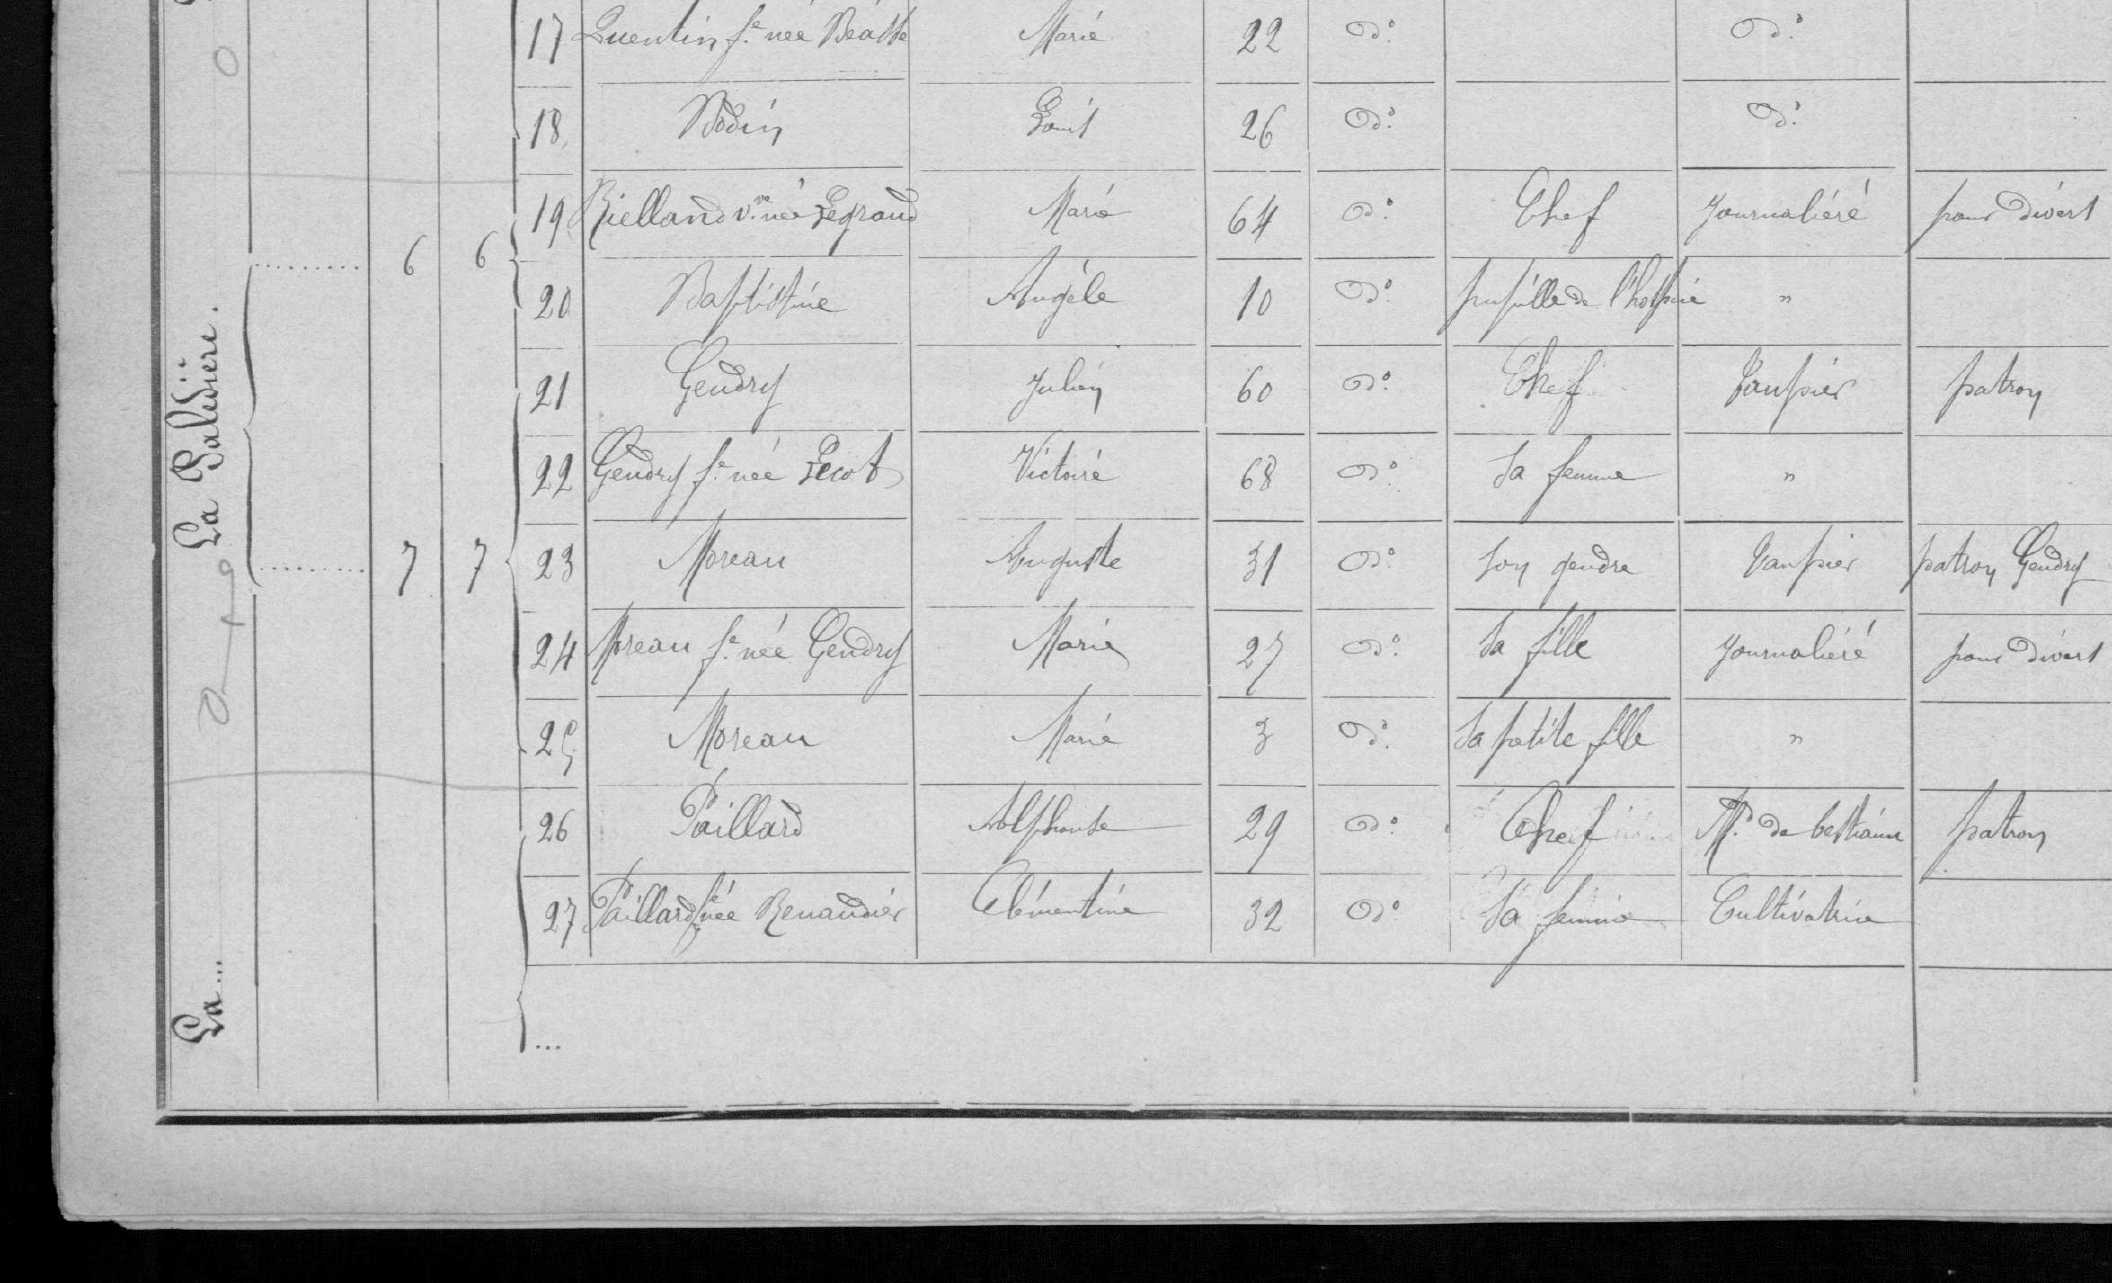 17 Quentin fe née Béasse Marie 22 do do
18 Bodin Louis 26 do do
19 Rielland ve née Legrand Marie 64 do Chef Journalière pour divers
6 6
20 Baptistine Angèle 10 do pupille de l'hospice "
21 Gendry Julien 60 do Chef Vannier patron
22 Gendry fe née Lecot Victoire 68 do Sa femme "
La Galvdière.
7 7
23 Moreau Auguste 31 do Son gendre Vannier patron Gendry
24 Moreau fe née Gendry Marie 27 do Sa fille Journalière pour divers
25 Moreau Marie 3 do Sa petite fille "
26 Paillard Alphonse 29 do Chef Md de bestiaux patron
27 Paillard fe née Renaudier Clémentine 32 do Sa femme Cultivatrice
La...
...